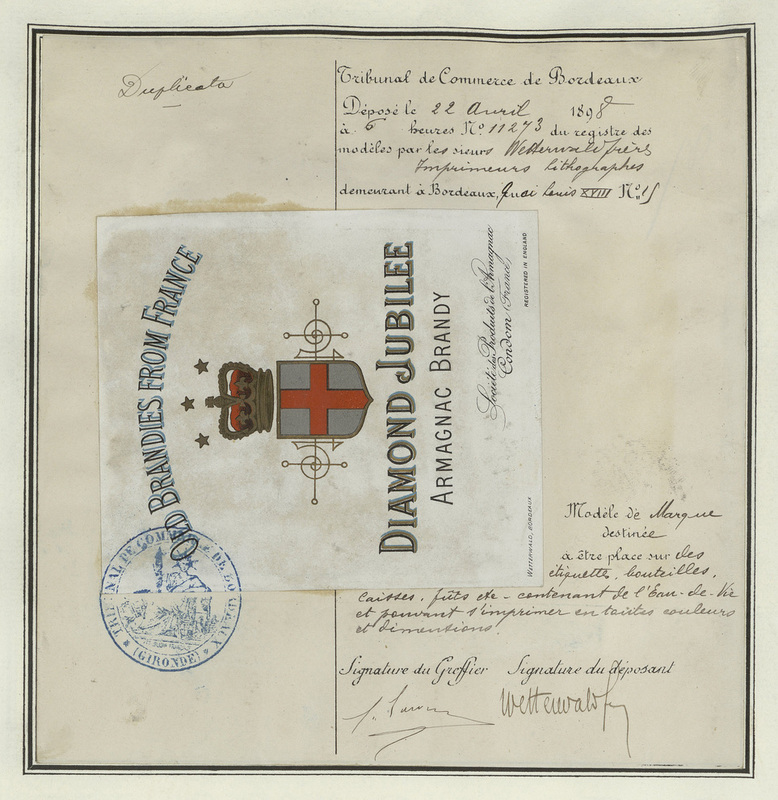 Duplicata
Tribunal de Commerce de Bordeaux
Déposé le 22 Avril 1898
à 6 heures No. 11273 du registre des
modèles par les sieurs Wetterwald frères
Imprimeurs lithographes
demeurant à Bordeaux, Quai Louis XVIII No.
OLD BRANDIES FROM FRANCE
DIAMOND JUBILEE
ARMAGNAC BRANDY
Société des Produits de l'Armagnac
Condom (France)
REGISTERED IN ENGLAND
WETTERWALD, BORDEAUX
TRIBUNAL DE COMMERCE DE BORDEAUX
(GIRONDE)
Modèle de Marque
destinée
à être place sur des
étiquettes, bouteilles,
caisses, fûts etc - contenant de l'Eau-de-Vie
et pouvant s'imprimer en toutes couleurs
et dimensions.
Signature du Greffier Signature du déposant
Wetterwald